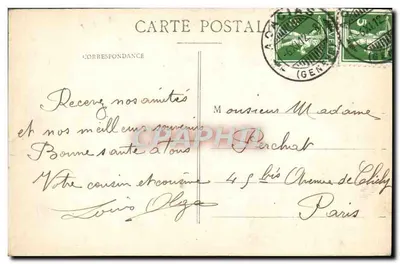 CARTE POSTALE
CORRESPONDANCE
ACACIAS
(GENÈVE)
5
Recevez nos amitiés
et nos meilleurs souvenirs
Bonne santé à tous
Votre cousin et cousine
Louis Olga
Monsieur Madame
Perchat
45 bis Avenue de Clichy
Paris
CPAPHIL